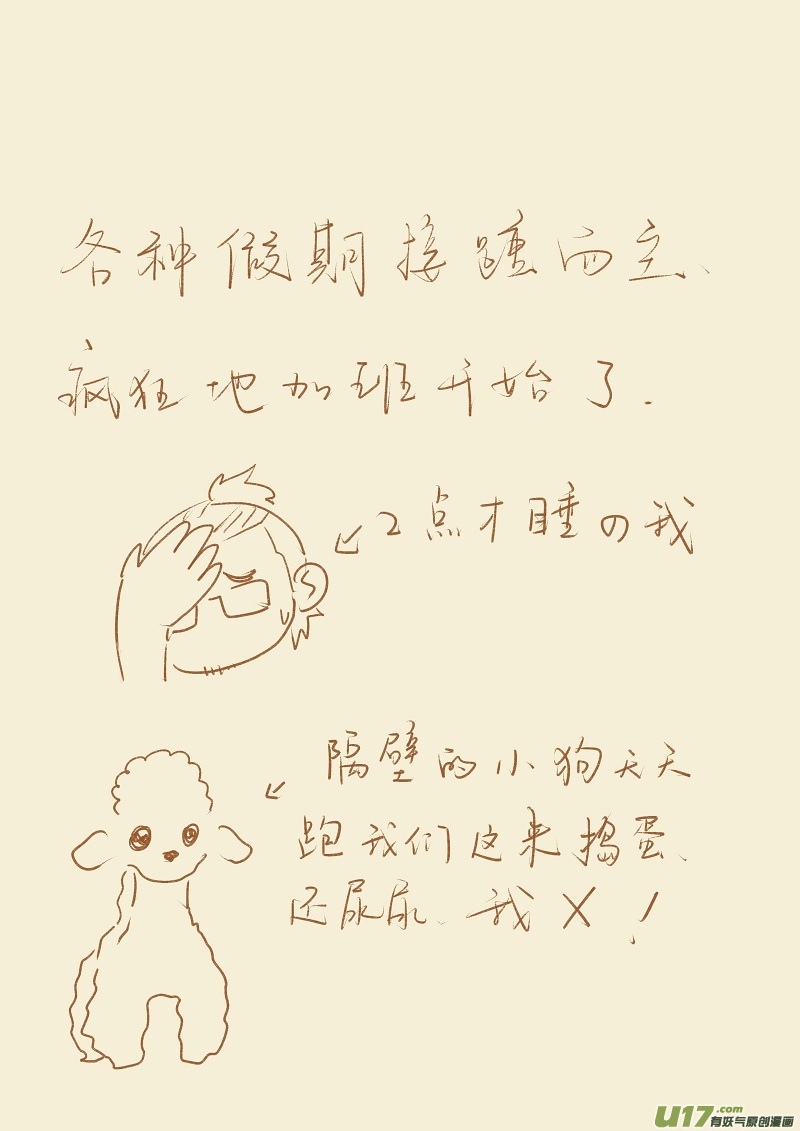 各种假期接踵而至、
疯狂地加班开始了.
2点才睡の我
隔壁的小狗天天
跑我们这来捣蛋、
还尿尿、我X!
U17.com
有妖气原创漫画